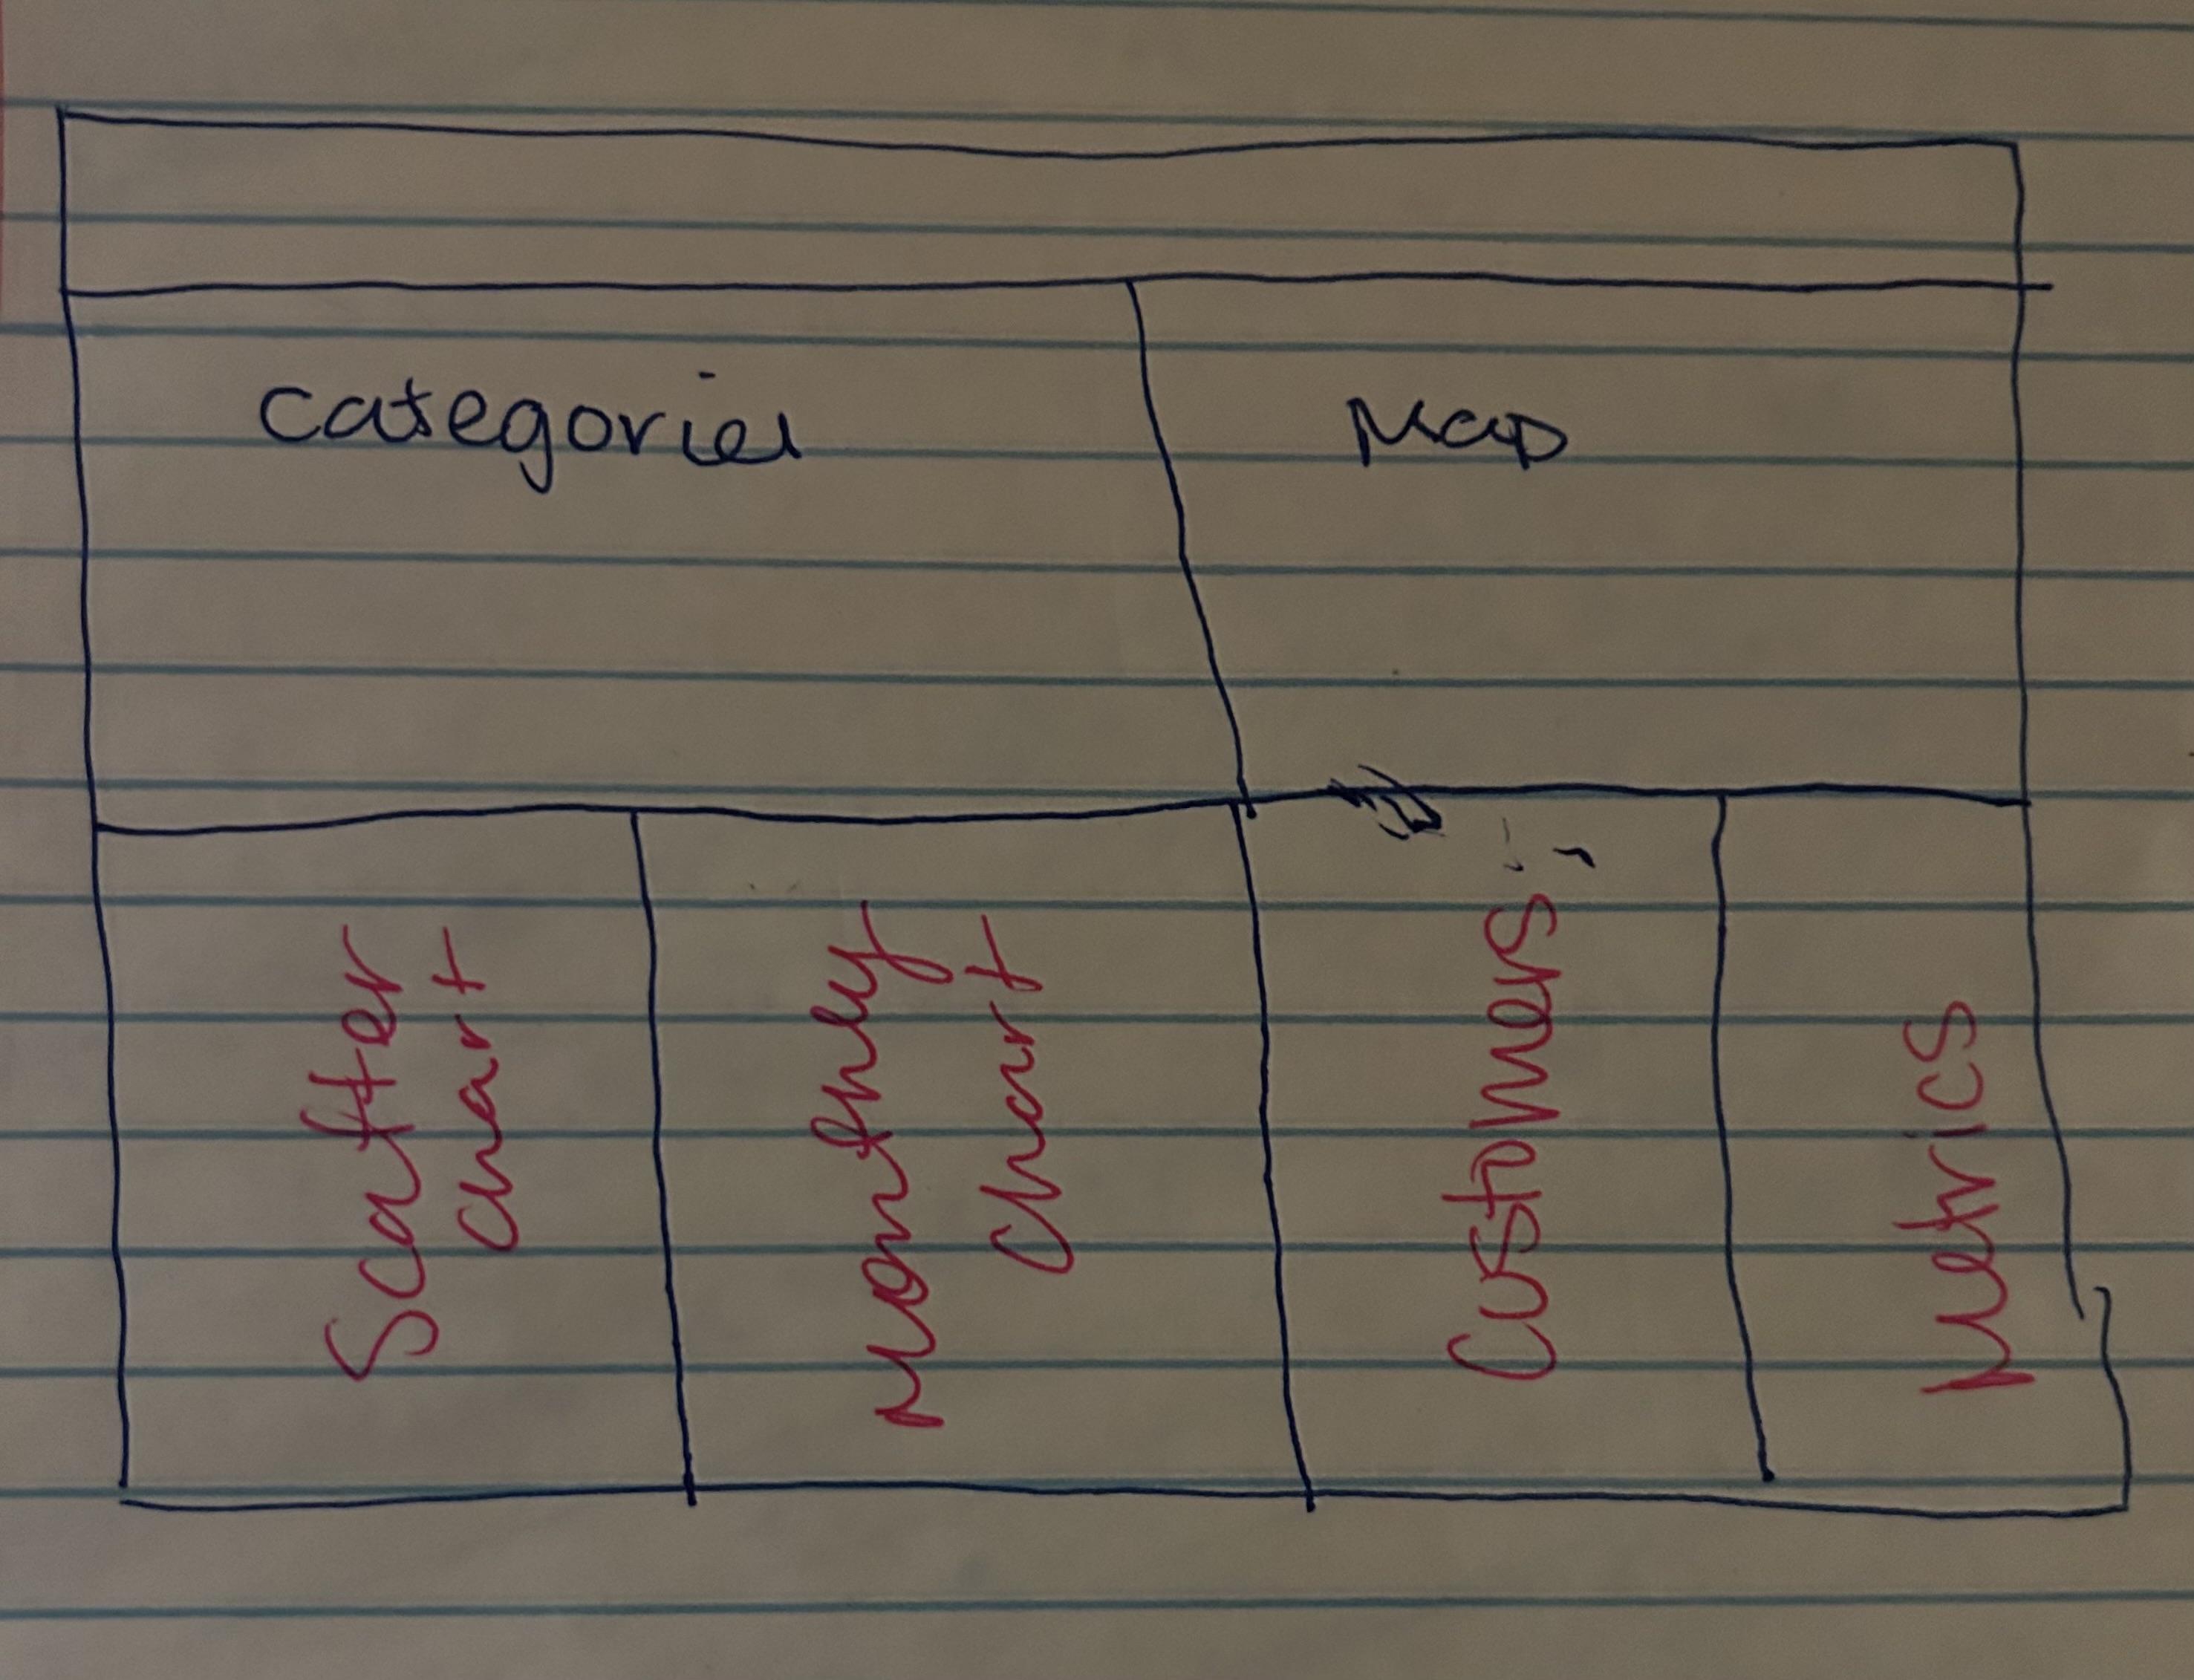 Categories
Map
Scatter
Chart
Monthly
Chart
Customers
Metrics